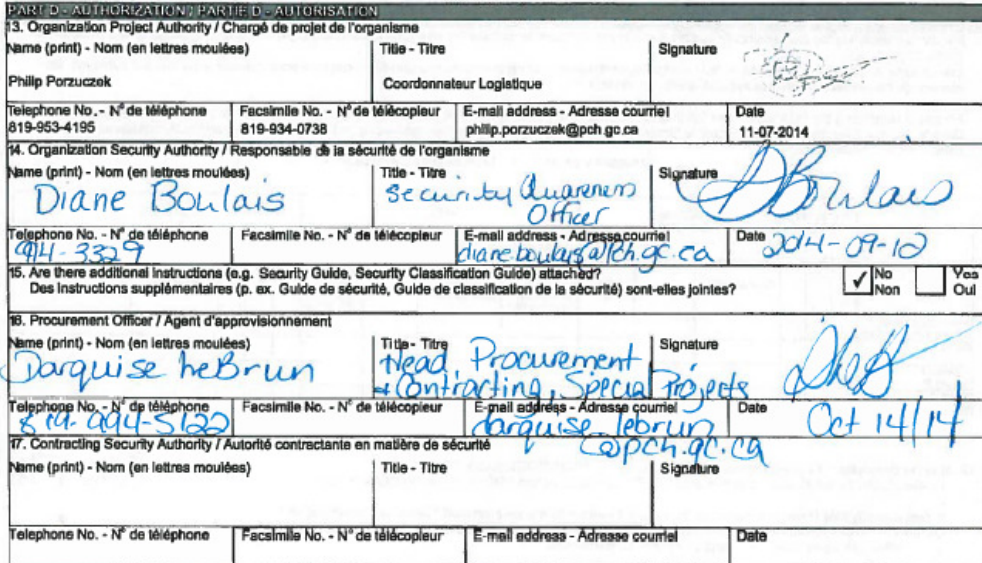 PART D - AUTHORIZATION / PARTIE D - AUTORISATION
13. Organization Project Authority / Chargé de projet de l'organisme
Name (print) - Nom (en lettres moulées) Title - Titre Signature
Philip Porzuczek Coordonnateur Logistique
Telephone No. - N° de téléphone Facsimile No. - N° de télécopieur E-mail address - Adresse courriel Date
819-953-4195 819-934-0738 philip.porzuczek@pch.gc.ca 11-07-2014
14. Organization Security Authority / Responsable de la sécurité de l'organisme
Name (print) - Nom (en lettres moulées) Title - Titre Signature
Diane Boulais Security Awareness DBoulais
Officer
Telephone No. - N° de téléphone Facsimile No. - N° de télécopieur E-mail address - Adresse courriel Date
994-3329 diane.boulais@pch.gc.ca 2014-09-10
15. Are there additional instructions (e.g. Security Guide, Security Classification Guide) attached? No Yes
Des instructions supplémentaires (p. ex. Guide de sécurité, Guide de classification de la sécurité) sont-elles jointes? Non Oui
16. Procurement Officer / Agent d'approvisionnement
Name (print) - Nom (en lettres moulées) Title - Titre Signature
Darquise LeBrun Head, Procurement
& Contracting, Special Projects
Telephone No. - N° de téléphone Facsimile No. - N° de télécopieur E-mail address - Adresse courriel Date
819-994-5122 darquise.lebrun Oct 14/14
@pch.gc.ca
17. Contracting Security Authority / Autorité contractante en matière de sécurité
Name (print) - Nom (en lettres moulées) Title - Titre Signature
Telephone No. - N° de téléphone Facsimile No. - N° de télécopieur E-mail address - Adresse courriel Date